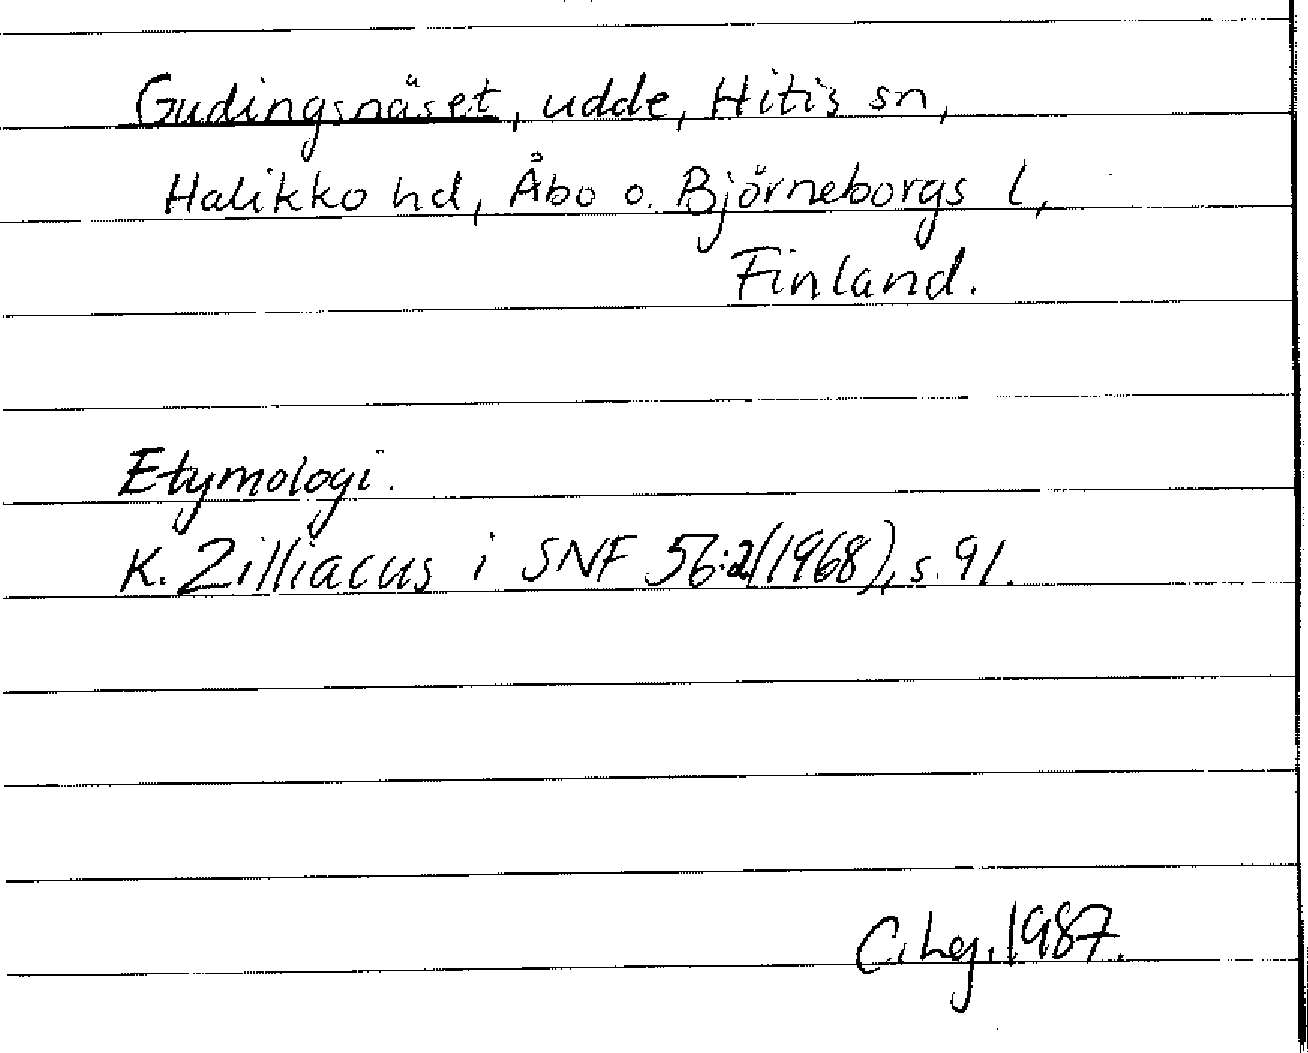 Gudingsnäset, udde, Hitis sn,
Halikko hd, Åbo o. Björneborgs l,
Finland.
Etymologi.
K. Zilliacus i SNF 56:2(1968), s. 91.
C. Lg. 1987.